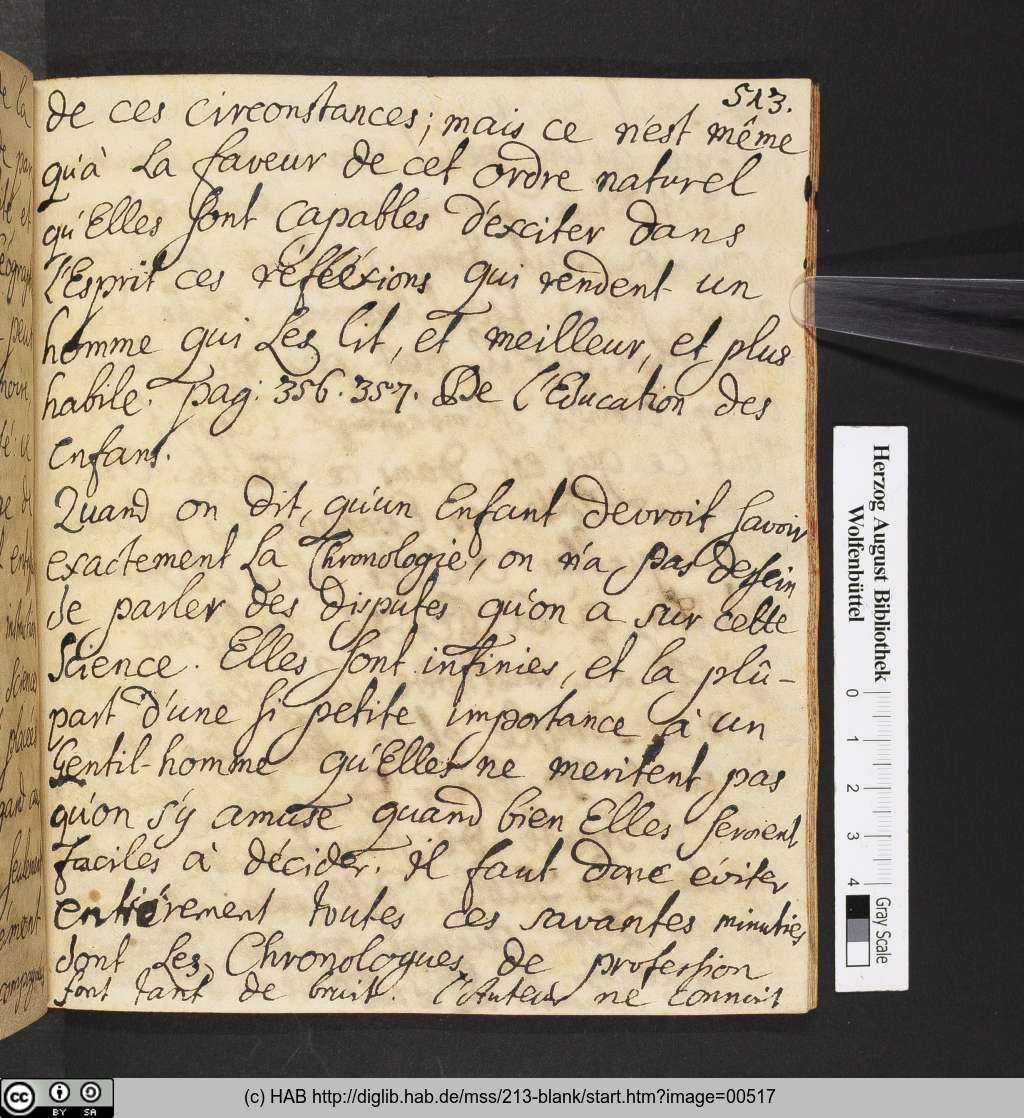 513.
de ces circonstances; mais ce n'est même
qu'à La faveur de cet ordre naturel
qu'Elles sont capables d'exciter dans
l'Esprit ces réfléxions qui rendent un
homme qui Les lit, et meilleur, et plus
habile. pag: 356. 357. De l'Education des
enfans.
Quand on dit, qu'un Enfant devroit savoir
exactement La Chronologie, on n'a pas dessein
de parler des disputes qu'on a sur cette
Science. Elles sont infinies, et la plû-
part d'une si petite importance à un
Gentil-homme qu'Elles ne meritent pas
qu'on s'y amuse quand bien Elles seroient
faciles à décider. il faut donc éviter
entiérement toutes ces savantes minuties
dont Les Chronologues de profession
font tant de bruit. l'Auteur ne connoit
Herzog August Bibliothek
Wolfenbüttel
0 1 2 3 4
Gray Scale
cc BY SA
(c) HAB http://diglib.hab.de/mss/213-blank/start.htm?image=00517